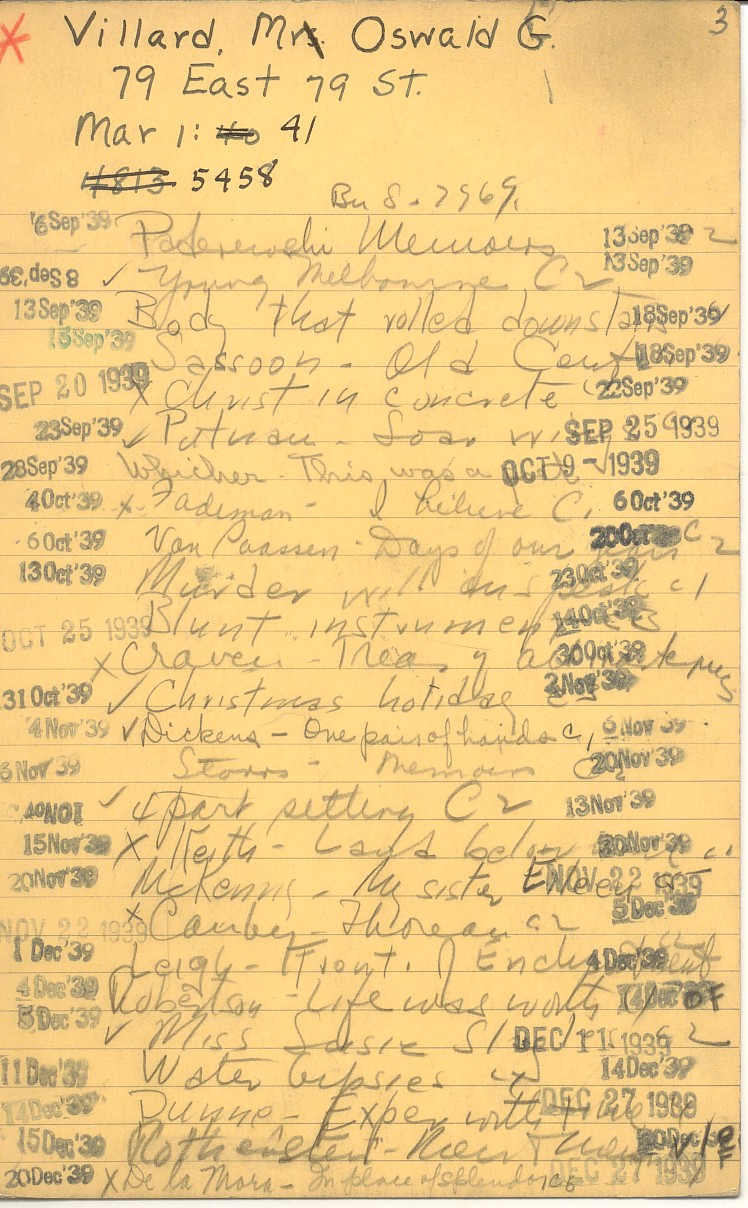 3
Villard, Mrs. Oswald G.
79 East 79 St.
Mar 1: 40 41
4813 5458
Bu 8-7969.
6 Sep'39 Paderewski Memoirs 13 Sep'39 2
8 Sep'39 ✓ Young Melbourne C2 13 Sep'39
13 Sep'39 Body that rolled downstairs 18 Sep'39
15 Sep'39 Sassoon - Old Cent 18 Sep'39
SEP 20 1939 x Christ in concrete 22 Sep'39
23 Sep'39 ✓ Putnam - SEP 25 1939
28 Sep'39 Whicher - This was a poet OCT 9 - 1939
4 Oct'39 x Fadiman - I believe C1 6 Oct'39
6 Oct'39 Van Paassen - Days of our years C2 20 Oct'39
13 Oct'39 Murder will in C1 23 Oct'39
OCT 25 1939 Blunt instrument 14 Oct'39
x Craven - Treas of art masterpieces 30 Oct'39
31 Oct'39 ✓ Christmas holiday 2 Nov'39
4 Nov'39 ✓ Dickens - One pair of hands C1 6 Nov'39
6 Nov'39 Storrs - Memoirs C2 20 Nov'39
✓ Apart setting C2 13 Nov'39
15 Nov'39 x Keith - Land below 20 Nov'39
20 Nov'39 McKenney - My sister Eileen NOV 22 1939
NOV 22 1939 x Canby - Thoreau C2 5 Dec'39
1 Dec'39 Leigh - Front. of Enchantment 4 Dec'39
4 Dec'39 Robertson - Life was worth 14 Dec'39 OF
5 Dec'39 ✓ Miss Susie Slagle's C2 DEC 11 1939
11 Dec'39 Water Gipsies 14 Dec'39
14 Dec'39 Dunne - Exper with time DEC 27 1939
15 Dec'39 Rothenstein - 20 Dec'39
20 Dec'39 x De la Mora - In place of splendor C5 DEC 27 1939